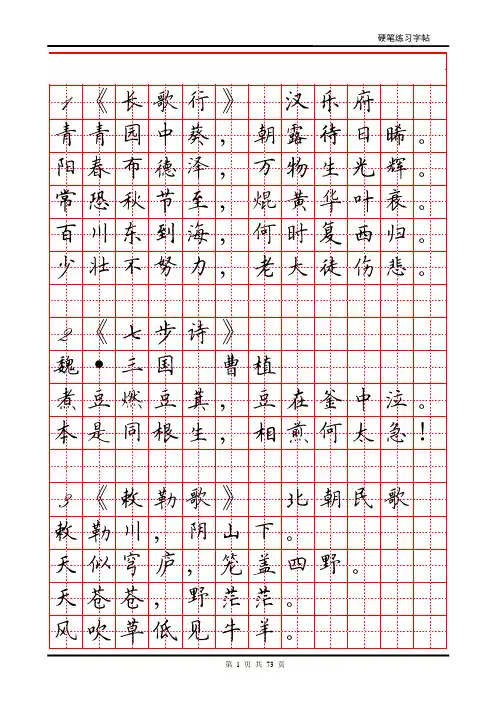 硬笔练习字帖
1 《长歌行》 汉乐府
青青园中葵，朝露待日晞。
阳春布德泽，万物生光辉。
常恐秋节至，焜黄华叶衰。
百川东到海，何时复西归。
少壮不努力，老大徒伤悲。
2 《七步诗》
魏•三国 曹植
煮豆燃豆萁，豆在釜中泣。
本是同根生，相煎何太急！
3 《敕勒歌》 北朝民歌
敕勒川，阴山下。
天似穹庐，笼盖四野。
天苍苍，野茫茫。
风吹草低见牛羊。
第 1 页 共 73 页